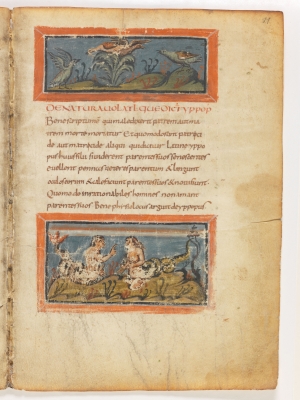 DE NATURA UOLATILI QUE DICIT YPPOP
Bene scriptum est qui maledixerit patrem aut ma
trem morte moriatur Et quomodo sunt patrici
dae aut matricidae aliqui quidicitur Latine yppo
pus huius filii si uiderint parentes suos senescentes
euellent pennas ueteres parentum & lingunt
oculos eorum & calefaciunt parentes suos & noui fiunt
Quomodo inrationabiles homines non amant
parentes suos Bene phisiolocus arguit de yppopus